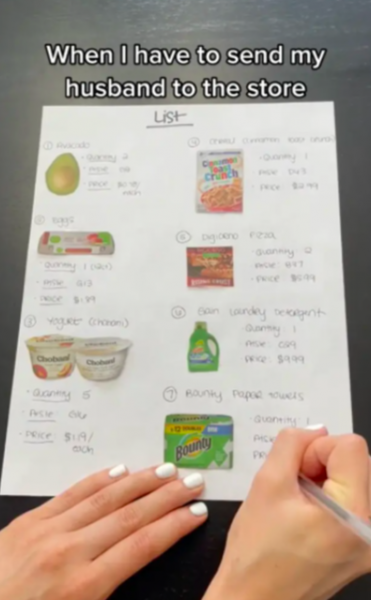 When I have to send my
husband to the store
List
① Avocado
- Quantity 2
- Aisle
- Price
each
② Eggs
Quantity 1
- Aisle
- Price $1.79
③ Yogurt (Chobani)
Chobani
Chobani
- Quantity 5
- Aisle
- Price $1.19/
each
Cinnamon Toast
Cinnamon
Toast
Crunch
- Quantity 1
- Aisle
- Price $2.99
⑤ Digiorno Pizza
- Quantity 2
- Aisle
- Price $5.99
Gain Laundry Detergent
Quantity 1
- Aisle
Price $9.99
⑦ Bounty Paper Towels
Bounty
- Quantity 1